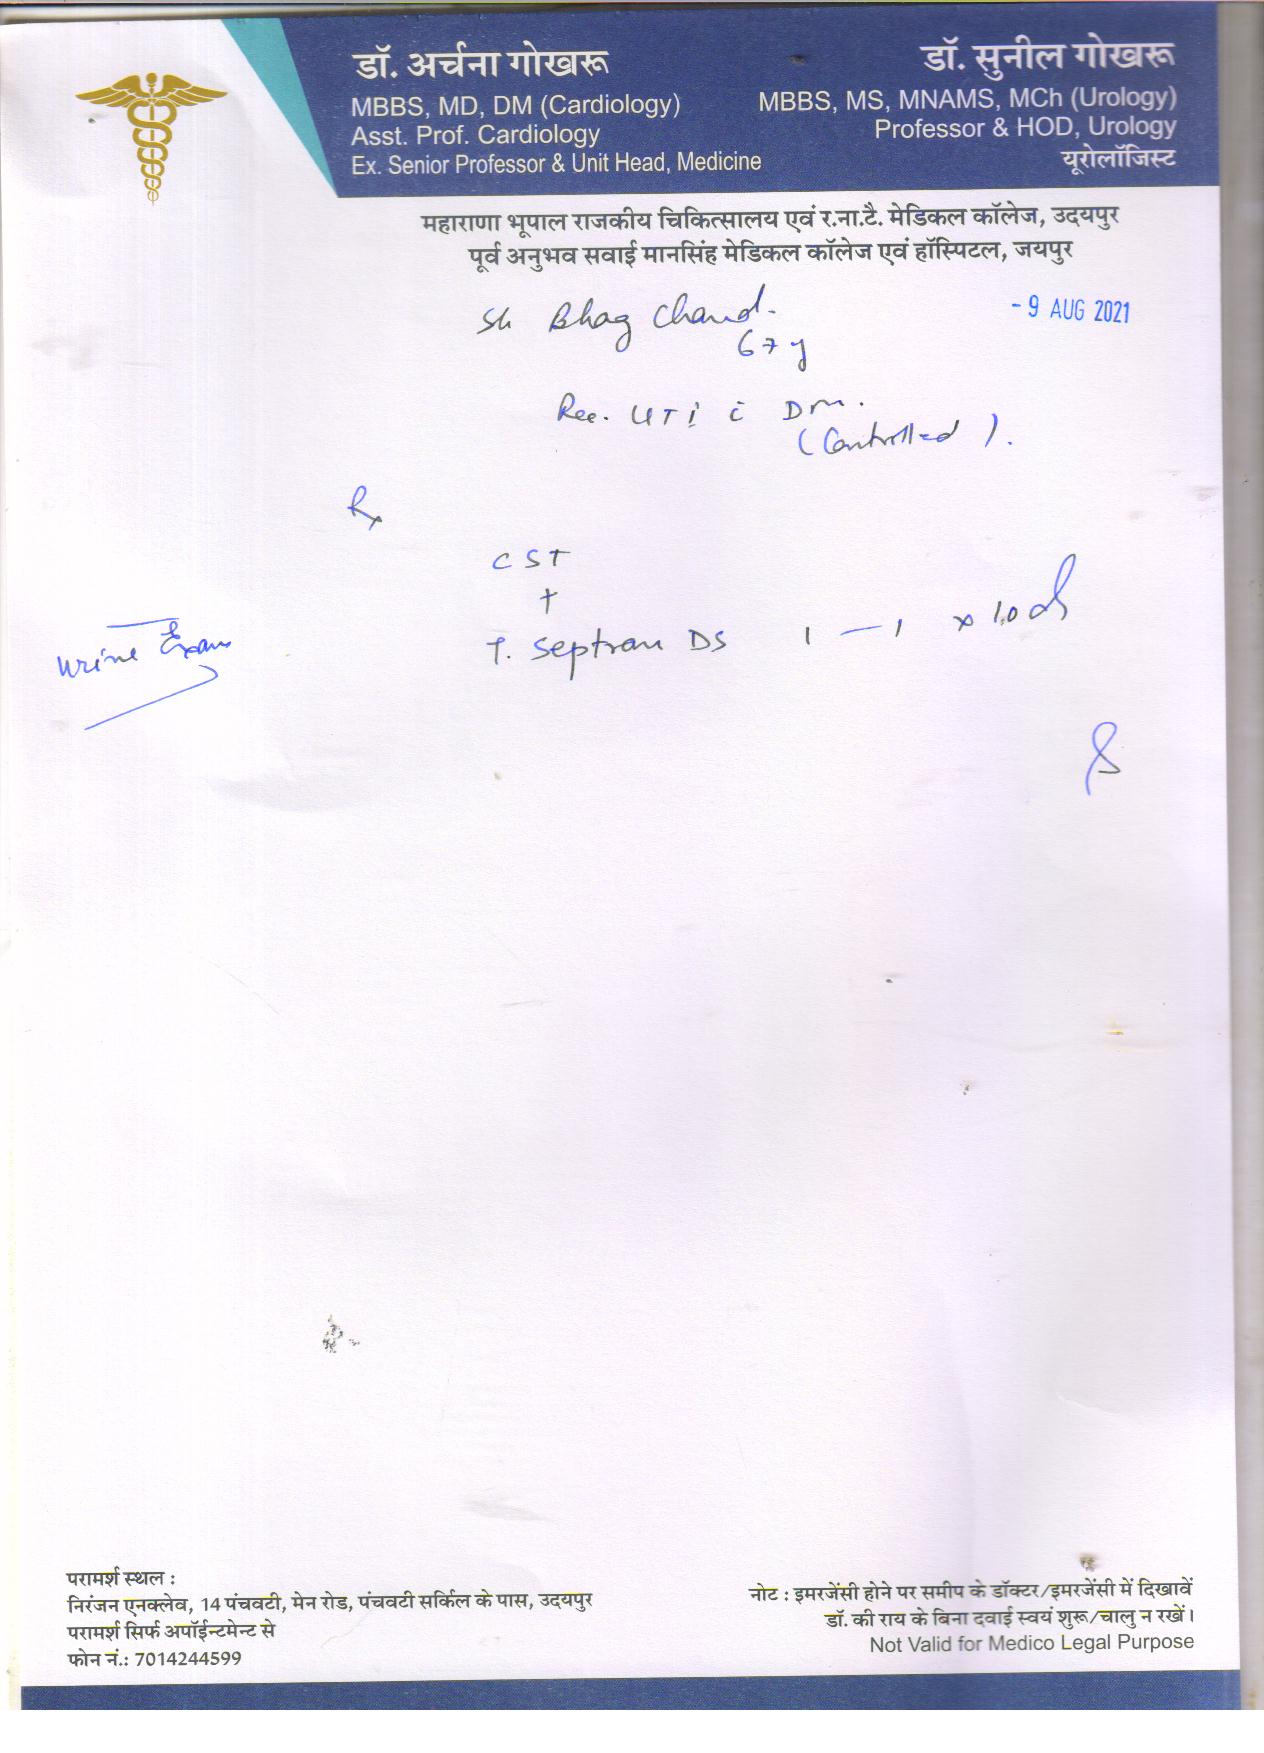 डॉ. अर्चना गोखरू
MBBS, MD, DM (Cardiology)
Asst. Prof. Cardiology
Ex. Senior Professor & Unit Head, Medicine
डॉ. सुनील गोखरू
MBBS, MS, MNAMS, MCh (Urology)
Professor & HOD, Urology
यूरोलॉजिस्ट
महाराणा भूपाल राजकीय चिकित्सालय एवं र.ना.टै. मेडिकल कॉलेज, उदयपुर
पूर्व अनुभव सवाई मानसिंह मेडिकल कॉलेज एवं हॉस्पिटल, जयपुर
- 9 AUG 2021
Sh Bhag Chand.
67 y
Rec. UTI c̄ DM.
(Controlled).
Rx
CST
+
T. Septran DS 1 — 1 x 10 d
Urine Exam
परामर्श स्थल :
निरंजन एनक्लेव, 14 पंचवटी, मेन रोड, पंचवटी सर्किल के पास, उदयपुर
परामर्श सिर्फ अपॉईन्टमेन्ट से
फोन नं.: 7014244599
नोट : इमरजेंसी होने पर समीप के डॉक्टर/इमरजेंसी में दिखावें
डॉ. की राय के बिना दवाई स्वयं शुरू/चालु न रखें।
Not Valid for Medico Legal Purpose